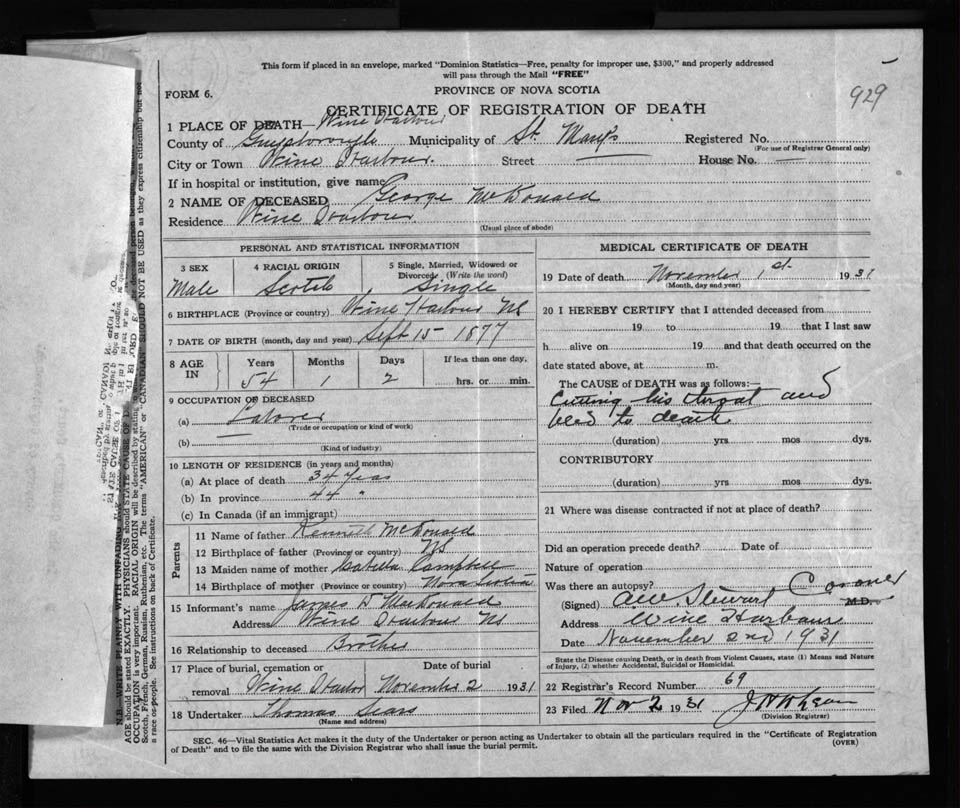 This form if placed in an envelope, marked "Dominion Statistics—Free, penalty for improper use, $300," and properly addressed
will pass through the Mail "FREE"
929
PROVINCE OF NOVA SCOTIA
FORM 6.
CERTIFICATE OF REGISTRATION OF DEATH
1 PLACE OF DEATH— Wine Harbour
County of Guysborough Municipality of St. Mary's Registered No.
(For use of Registrar General only)
City or Town Wine Harbour. Street — House No. —
If in hospital or institution, give name
2 NAME OF DECEASED George McDonald
Residence Wine Harbour
(Usual place of abode)
PERSONAL AND STATISTICAL INFORMATION
3 SEX 4 RACIAL ORIGIN 5 Single, Married, Widowed or
Divorced (Write the word)
Male Scotch Single
6 BIRTHPLACE (Province or country) Wine Harbour NS
7 DATE OF BIRTH (month, day and year) Sept 15 1877
8 AGE IN Years Months Days If less than one day,
54 1 2 hrs. or min.
9 OCCUPATION OF DECEASED
(a) Laborer
(Trade or occupation or kind of work)
(b) —
(Kind of industry)
10 LENGTH OF RESIDENCE (in years and months)
(a) At place of death 34 Years
(b) In province 44 "
(c) In Canada (if an immigrant)
Parents
11 Name of father Kenneth McDonald
12 Birthplace of father (Province or country) NS
13 Maiden name of mother Isabella Campbell
14 Birthplace of mother (Province or country) Nova Scotia
15 Informant's name James D MacDonald
Address Wine Harbour NS
16 Relationship to deceased Brother
17 Place of burial, cremation or Date of burial
removal Wine Harbor November 2 1931
18 Undertaker Thomas Sears
(Name and address)
MEDICAL CERTIFICATE OF DEATH
19 Date of death November 1st. 1931
(Month, day and year)
20 I HEREBY CERTIFY that I attended deceased from
19 to 19 that I last saw
h alive on 19 and that death occurred on the
date stated above, at m.
The CAUSE of DEATH was as follows:—
Cutting his throat and
bled to death
(duration) yrs mos dys.
CONTRIBUTORY
(duration) yrs mos dys.
21 Where was disease contracted if not at place of death?
Did an operation precede death? Date of
Nature of operation
Was there an autopsy?
(Signed) A.W. Stewart Coroner M.D.
Address Wine Harbour
Date November 2nd 1931
State the Disease causing Death, or in death from Violent Causes, state (1) Means and Nature
of Injury, (2) whether Accidental, Suicidal or Homicidal.
22 Registrar's Record Number 69
23 Filed Nov 2 1931
(Division Registrar)
SEC. 46—Vital Statistics Act makes it the duty of the Undertaker or person acting as Undertaker to obtain all the particulars required in the "Certificate of Registration
of Death" and to file the same with the Division Registrar who shall issue the burial permit. (OVER)
N.B.—WRITE PLAINLY WITH UNFADING
AGE should be stated EXACTLY. PHYSICIANS should STATE CAUSE OF D
OCCUPATION is very important. RACIAL ORIGIN will be described by stating
Scotch, French, German, Russian, Ruthenian, etc. The terms "AMERICAN" or "CANADIAN" SHOULD NOT BE USED as they express citizenship but not
a race or people. See instructions on back of Certificate.